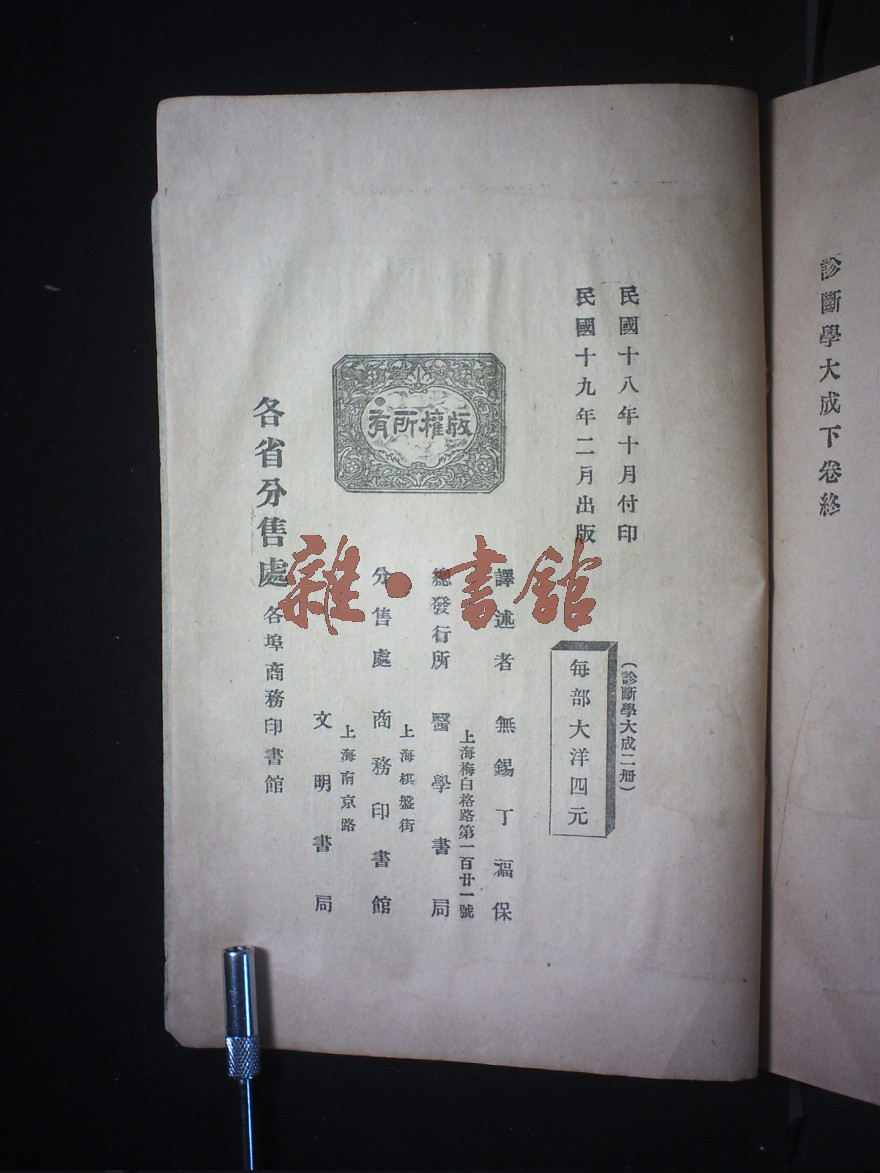 診斷學大成下卷終
民國十八年十月付印
民國十九年二月出版
(診斷學大成二册)
每部大洋四元
版權所有
譯述者 無錫丁福保
上海梅白格路第一百廿一號
總發行所 醫學書局
上海棋盤街
分售處 商務印書館
上海南京路
文明書局
各省分售處 各埠商務印書館
雜·書館